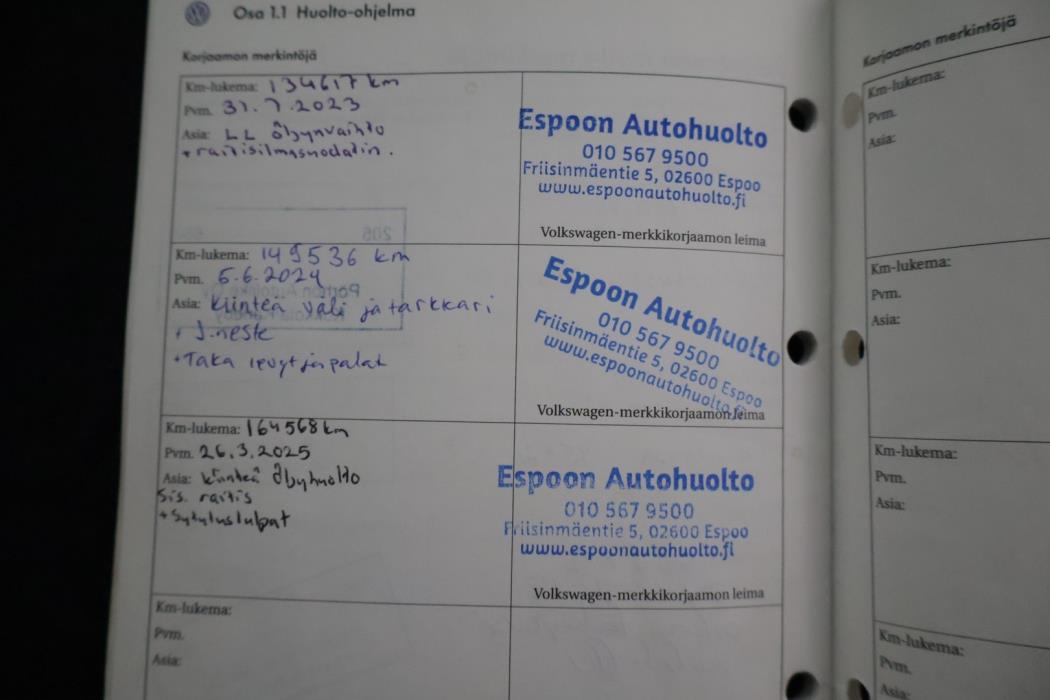 Osa 1.1 Huolto-ohjelma
Korjaamon merkintöjä
Km-lukema: 134617 km
Pvm. 31.7.2023
Asia: LL öljynvaihto
+ raitisilmasuodatin.
Espoon Autohuolto
010 567 9500
Friisinmäentie 5, 02600 Espoo
www.espoonautohuolto.fi
Volkswagen-merkkikorjaamon leima
Km-lukema: 149536 km
Pvm. 5.6.2024
Asia: kiinteä väli ja tarkkari
+ J.neste
+ Taka levyt ja palat
Espoon Autohuolto
010 567 9500
Friisinmäentie 5, 02600 Espoo
www.espoonautohuolto.fi
Volkswagen-merkkikorjaamon leima
Km-lukema: 164568 km
Pvm. 26.3.2025
Asia: kiinteä öljyhuolto
sis. raitis
+ sytytystulpat
Espoon Autohuolto
010 567 9500
Friisinmäentie 5, 02600 Espoo
www.espoonautohuolto.fi
Volkswagen-merkkikorjaamon leima
Km-lukema:
Pvm.
Asia:
Korjaamon merkintöjä
Km-lukema:
Pvm.
Asia:
Km-lukema:
Pvm.
Asia:
Km-lukema:
Pvm.
Asia:
Km-lukema:
Pvm.
Asia: